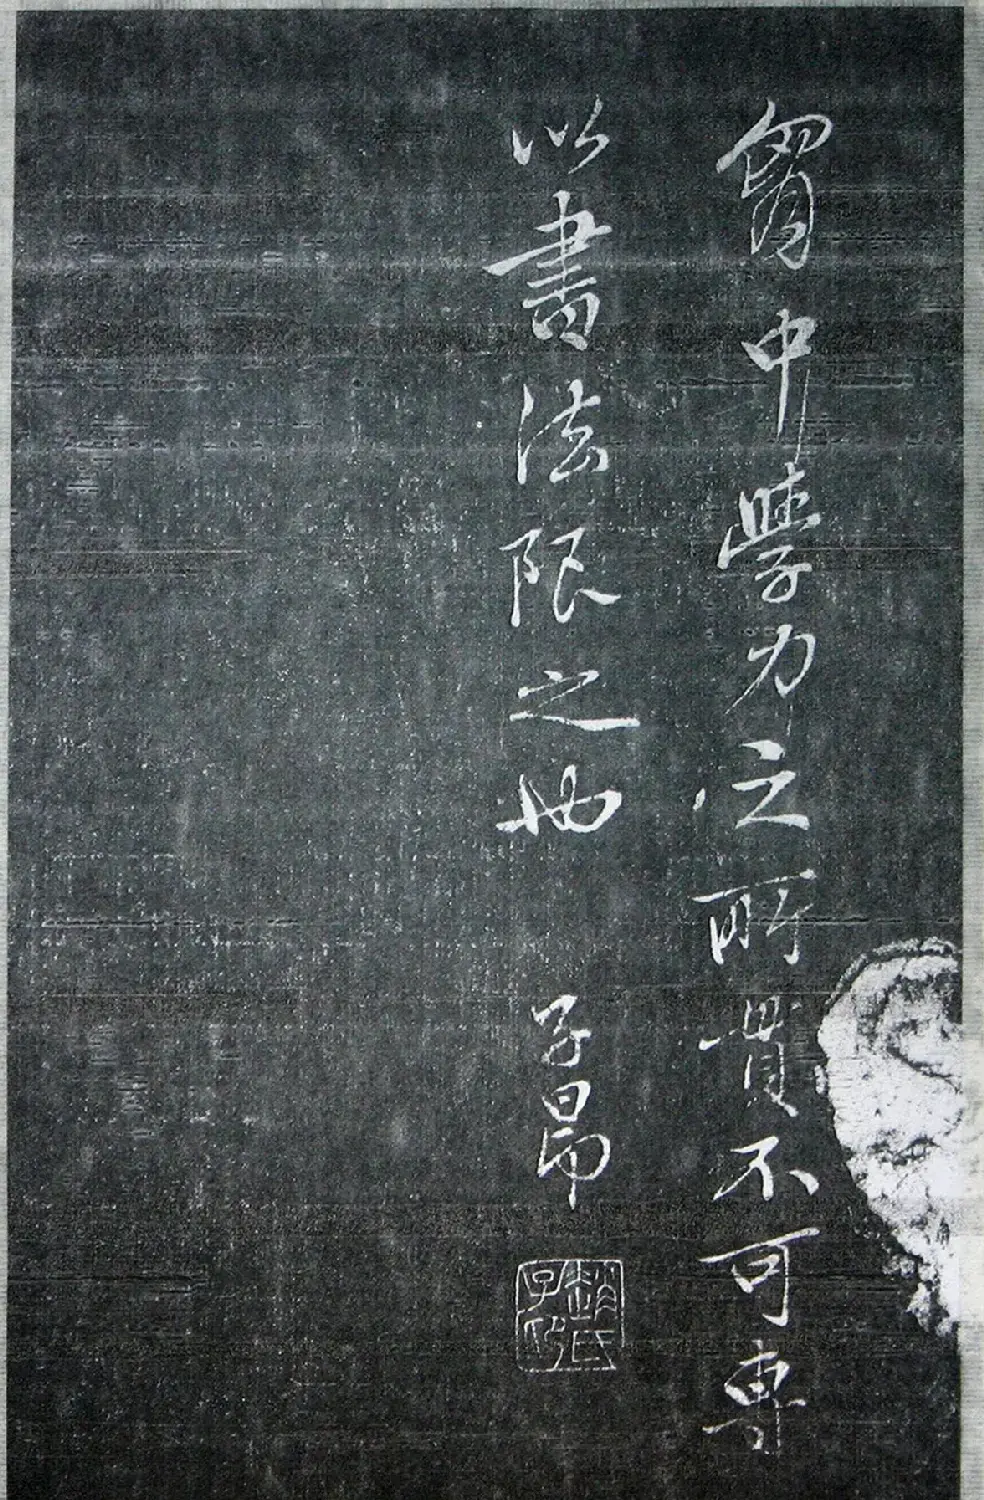 胷中學力之所貴不可專
以書法限之也 子昂
趙氏子昂